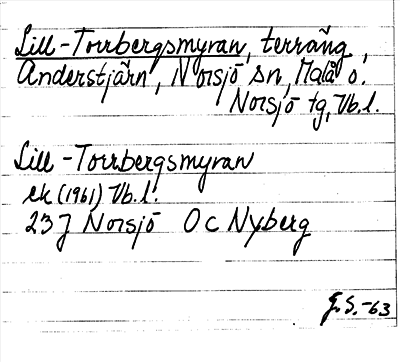 Lill-Torrbergsmyran, terräng,
Anderstjärn, Norsjö sn, Malå o.
Norsjö tg, Vb.l.
Lill-Torrbergsmyran
ek (1961) Vb.l.
23J Norsjö OC Nyberg
G.S.-63